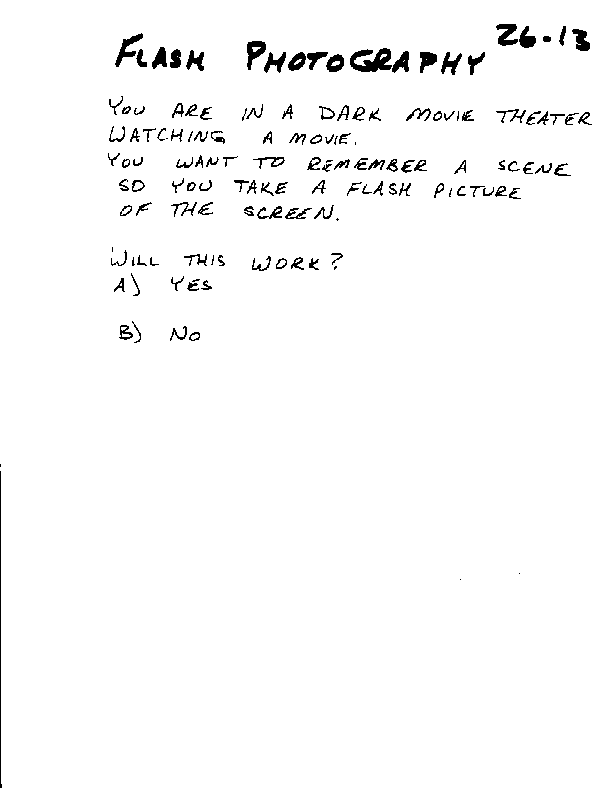 26-13
FLASH PHOTOGRAPHY
YOU ARE IN A DARK MOVIE THEATER
WATCHING A MOVIE.
YOU WANT TO REMEMBER A SCENE
SO YOU TAKE A FLASH PICTURE
OF THE SCREEN.
WILL THIS WORK?
A) YES
B) NO